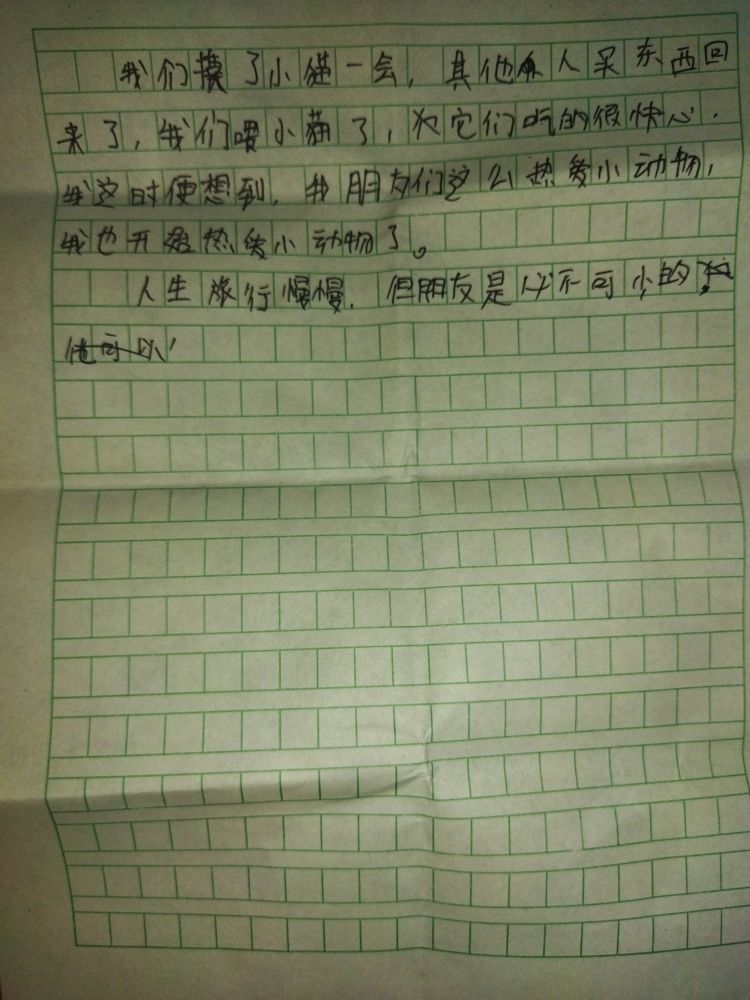 我们摸了小猫一会，其他人买东西回
来了，我们喂小猫了，它们吃的很快心．
我这时便想到，我朋友们这么热爱小动物，
我也开始热爱小动物了。
人生旅行慢慢，但朋友是必不可少的
他可以